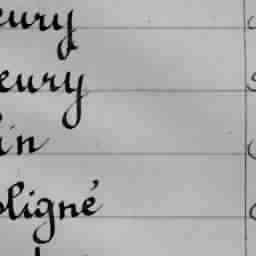 eury
eury
in
oligné